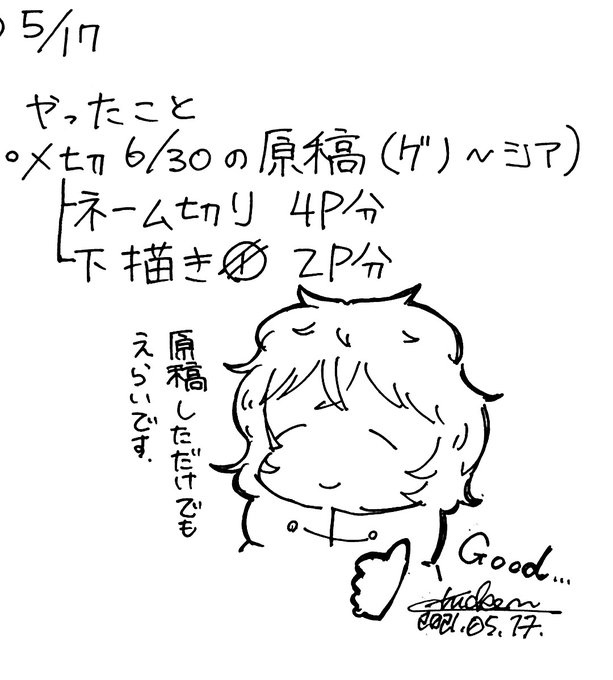 5/17
やったこと
〆切 6/30の原稿(ゲ)〜シア)
ネーム切り 4P分
下描き 2P分
原稿しただけでも
えらいです.
Good...
2021.05.17.